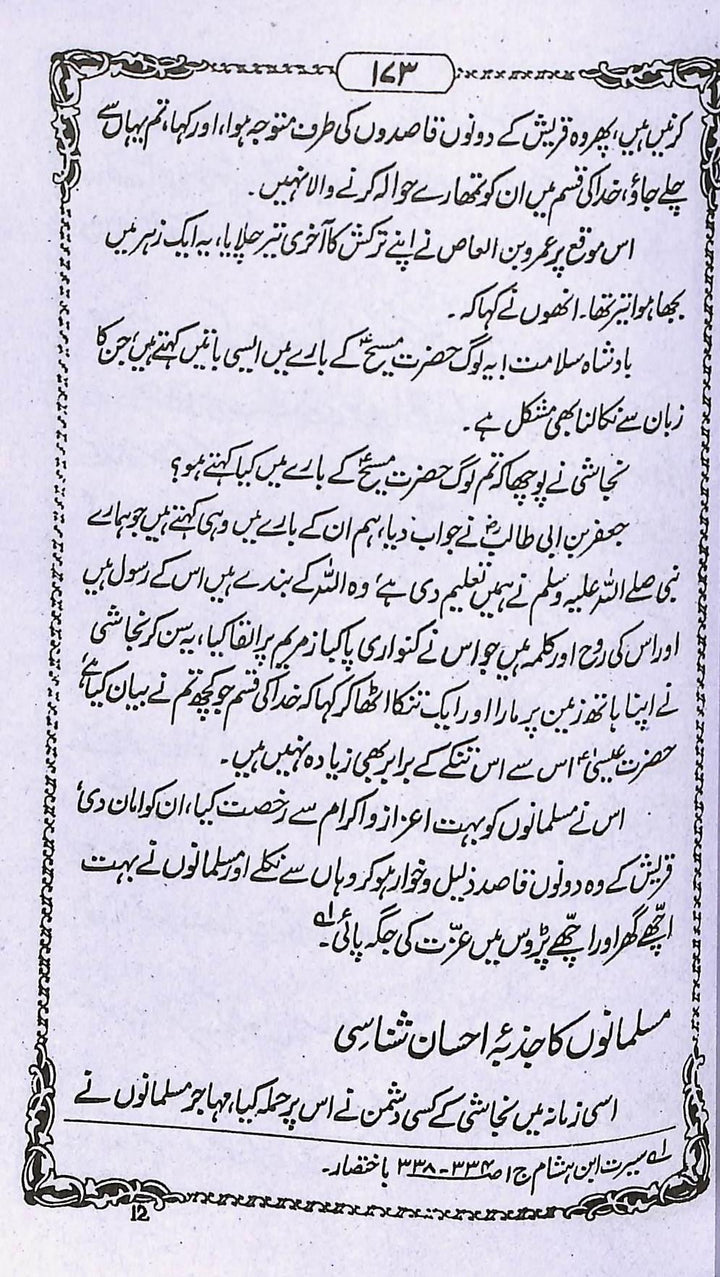 ۱۷۳
کرنیں ہیں، پھر وہ قریش کے دونوں قاصدوں کی طرف متوجہ ہوا، اور کہا، تم یہاں سے
چلے جاؤ، خدا کی قسم میں ان کو تمھارے حوالہ کرنے والا نہیں۔
اس موقع پر عمرو بن العاص نے اپنے ترکش کا آخری تیر چلایا، یہ ایک زہر میں
بجھا ہوا تیر تھا۔ انھوں نے کہا کہ۔
بادشاہ سلامت! یہ لوگ حضرت مسیحؑ کے بارے میں ایسی باتیں کہتے ہیں، جن کا
زبان سے نکالنا بھی مشکل ہے۔
نجاشی نے پوچھا کہ تم لوگ حضرت مسیحؑ کے بارے میں کیا کہتے ہو؟
جعفر بن ابی طالبؓ نے جواب دیا، ہم ان کے بارے میں وہی کہتے ہیں جو ہمارے
نبی صلے اللہ علیہ وسلم نے ہمیں تعلیم دی ہے، وہ اللہ کے بندے ہیں اس کے رسول ہیں
اور اس کی روح اور کلمہ ہیں جو اس نے کنواری پاکباز مریم پر القا کیا، یہ سن کر نجاشی
نے اپنا ہاتھ زمین پر مارا اور ایک تنکا اٹھا کر کہا کہ خدا کی قسم جو کچھ تم نے بیان کیا ہے،
حضرت عیسیٰؑ اس سے اس تنکے کے برابر بھی زیادہ نہیں ہیں۔
اس نے مسلمانوں کو بہت اعزاز و اکرام سے رخصت کیا، ان کو امان دی،
قریش کے وہ دونوں قاصد ذلیل و خوار ہو کر وہاں سے نکلے اور مسلمانوں نے بہت
اچھے گھر اور اچھے پڑوس میں عزّت کی جگہ پائی۔ لہ
مسلمانوں کا جذبۂ احسان شناسی
اسی زمانہ میں نجاشی کے کسی دشمن نے اس پر حملہ کیا، مہاجر مسلمانوں نے
لہ سیرت ابن ہشام ج۱ ص۳۳۴-۳۳۸ باختصار۔
12